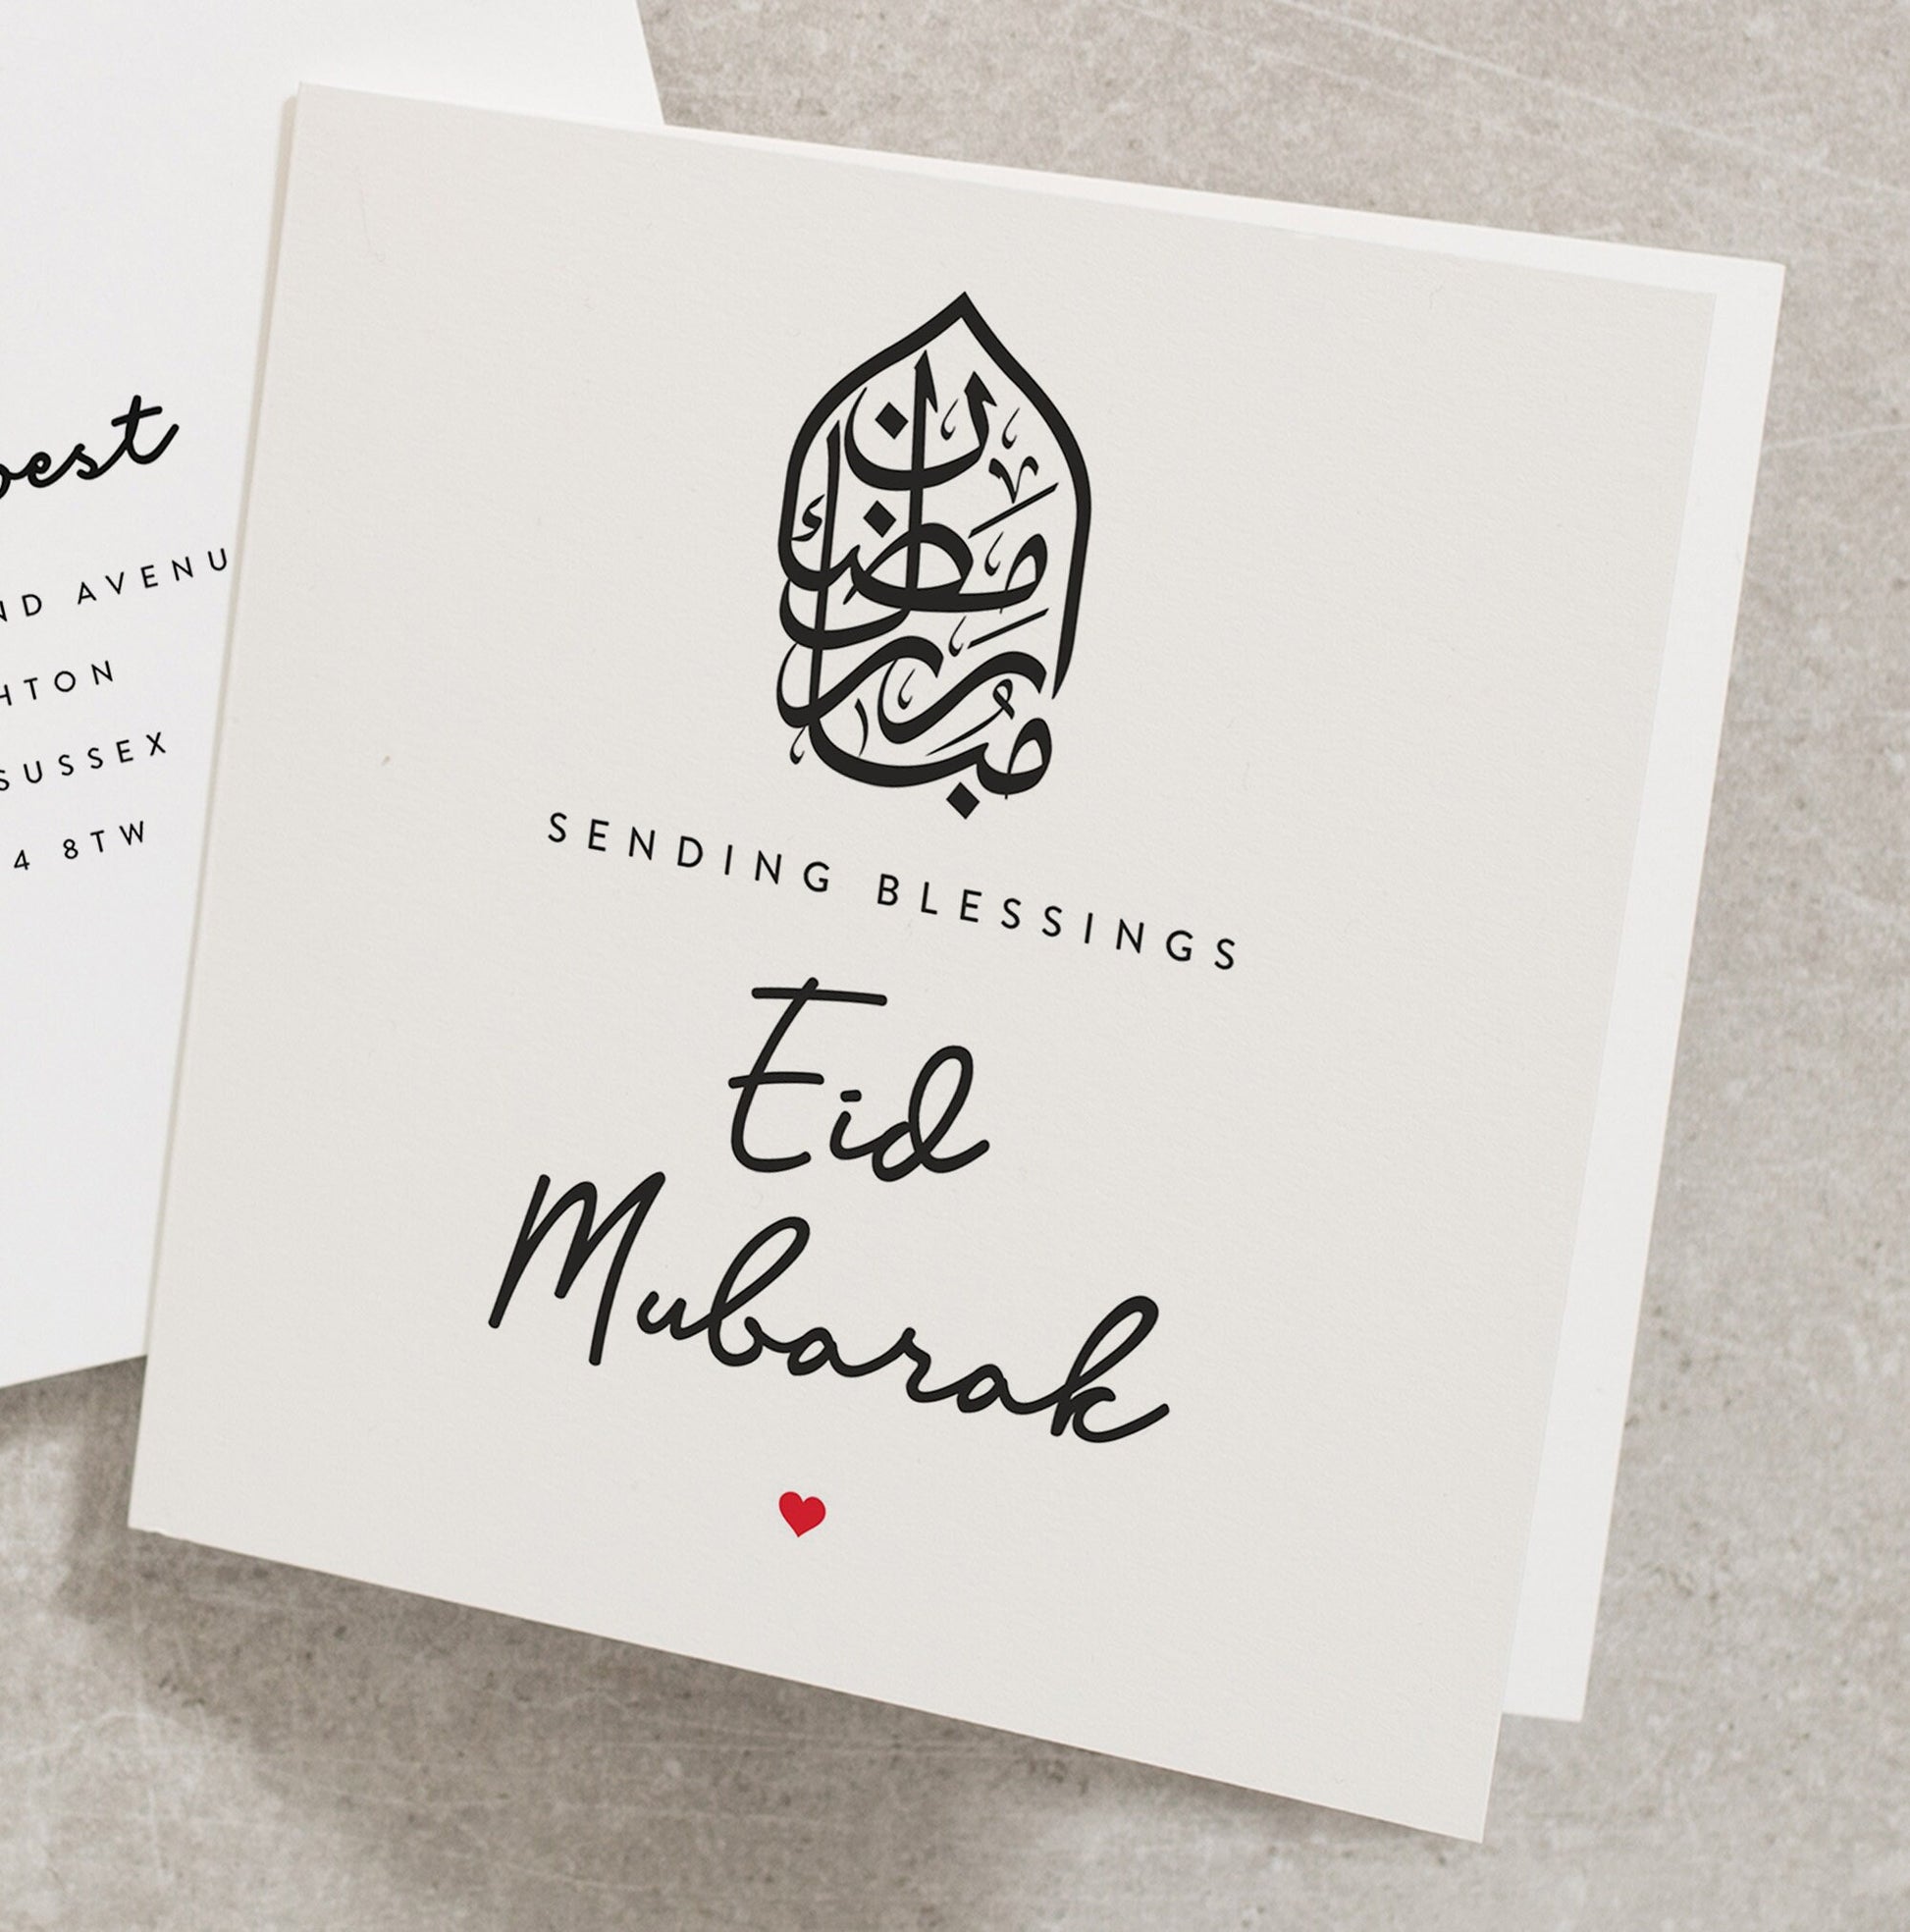 best
ND AVENU
HTON
SUSSEX
4 8TW
رمضان
مبارك
SENDING BLESSINGS
Eid
Mubarak